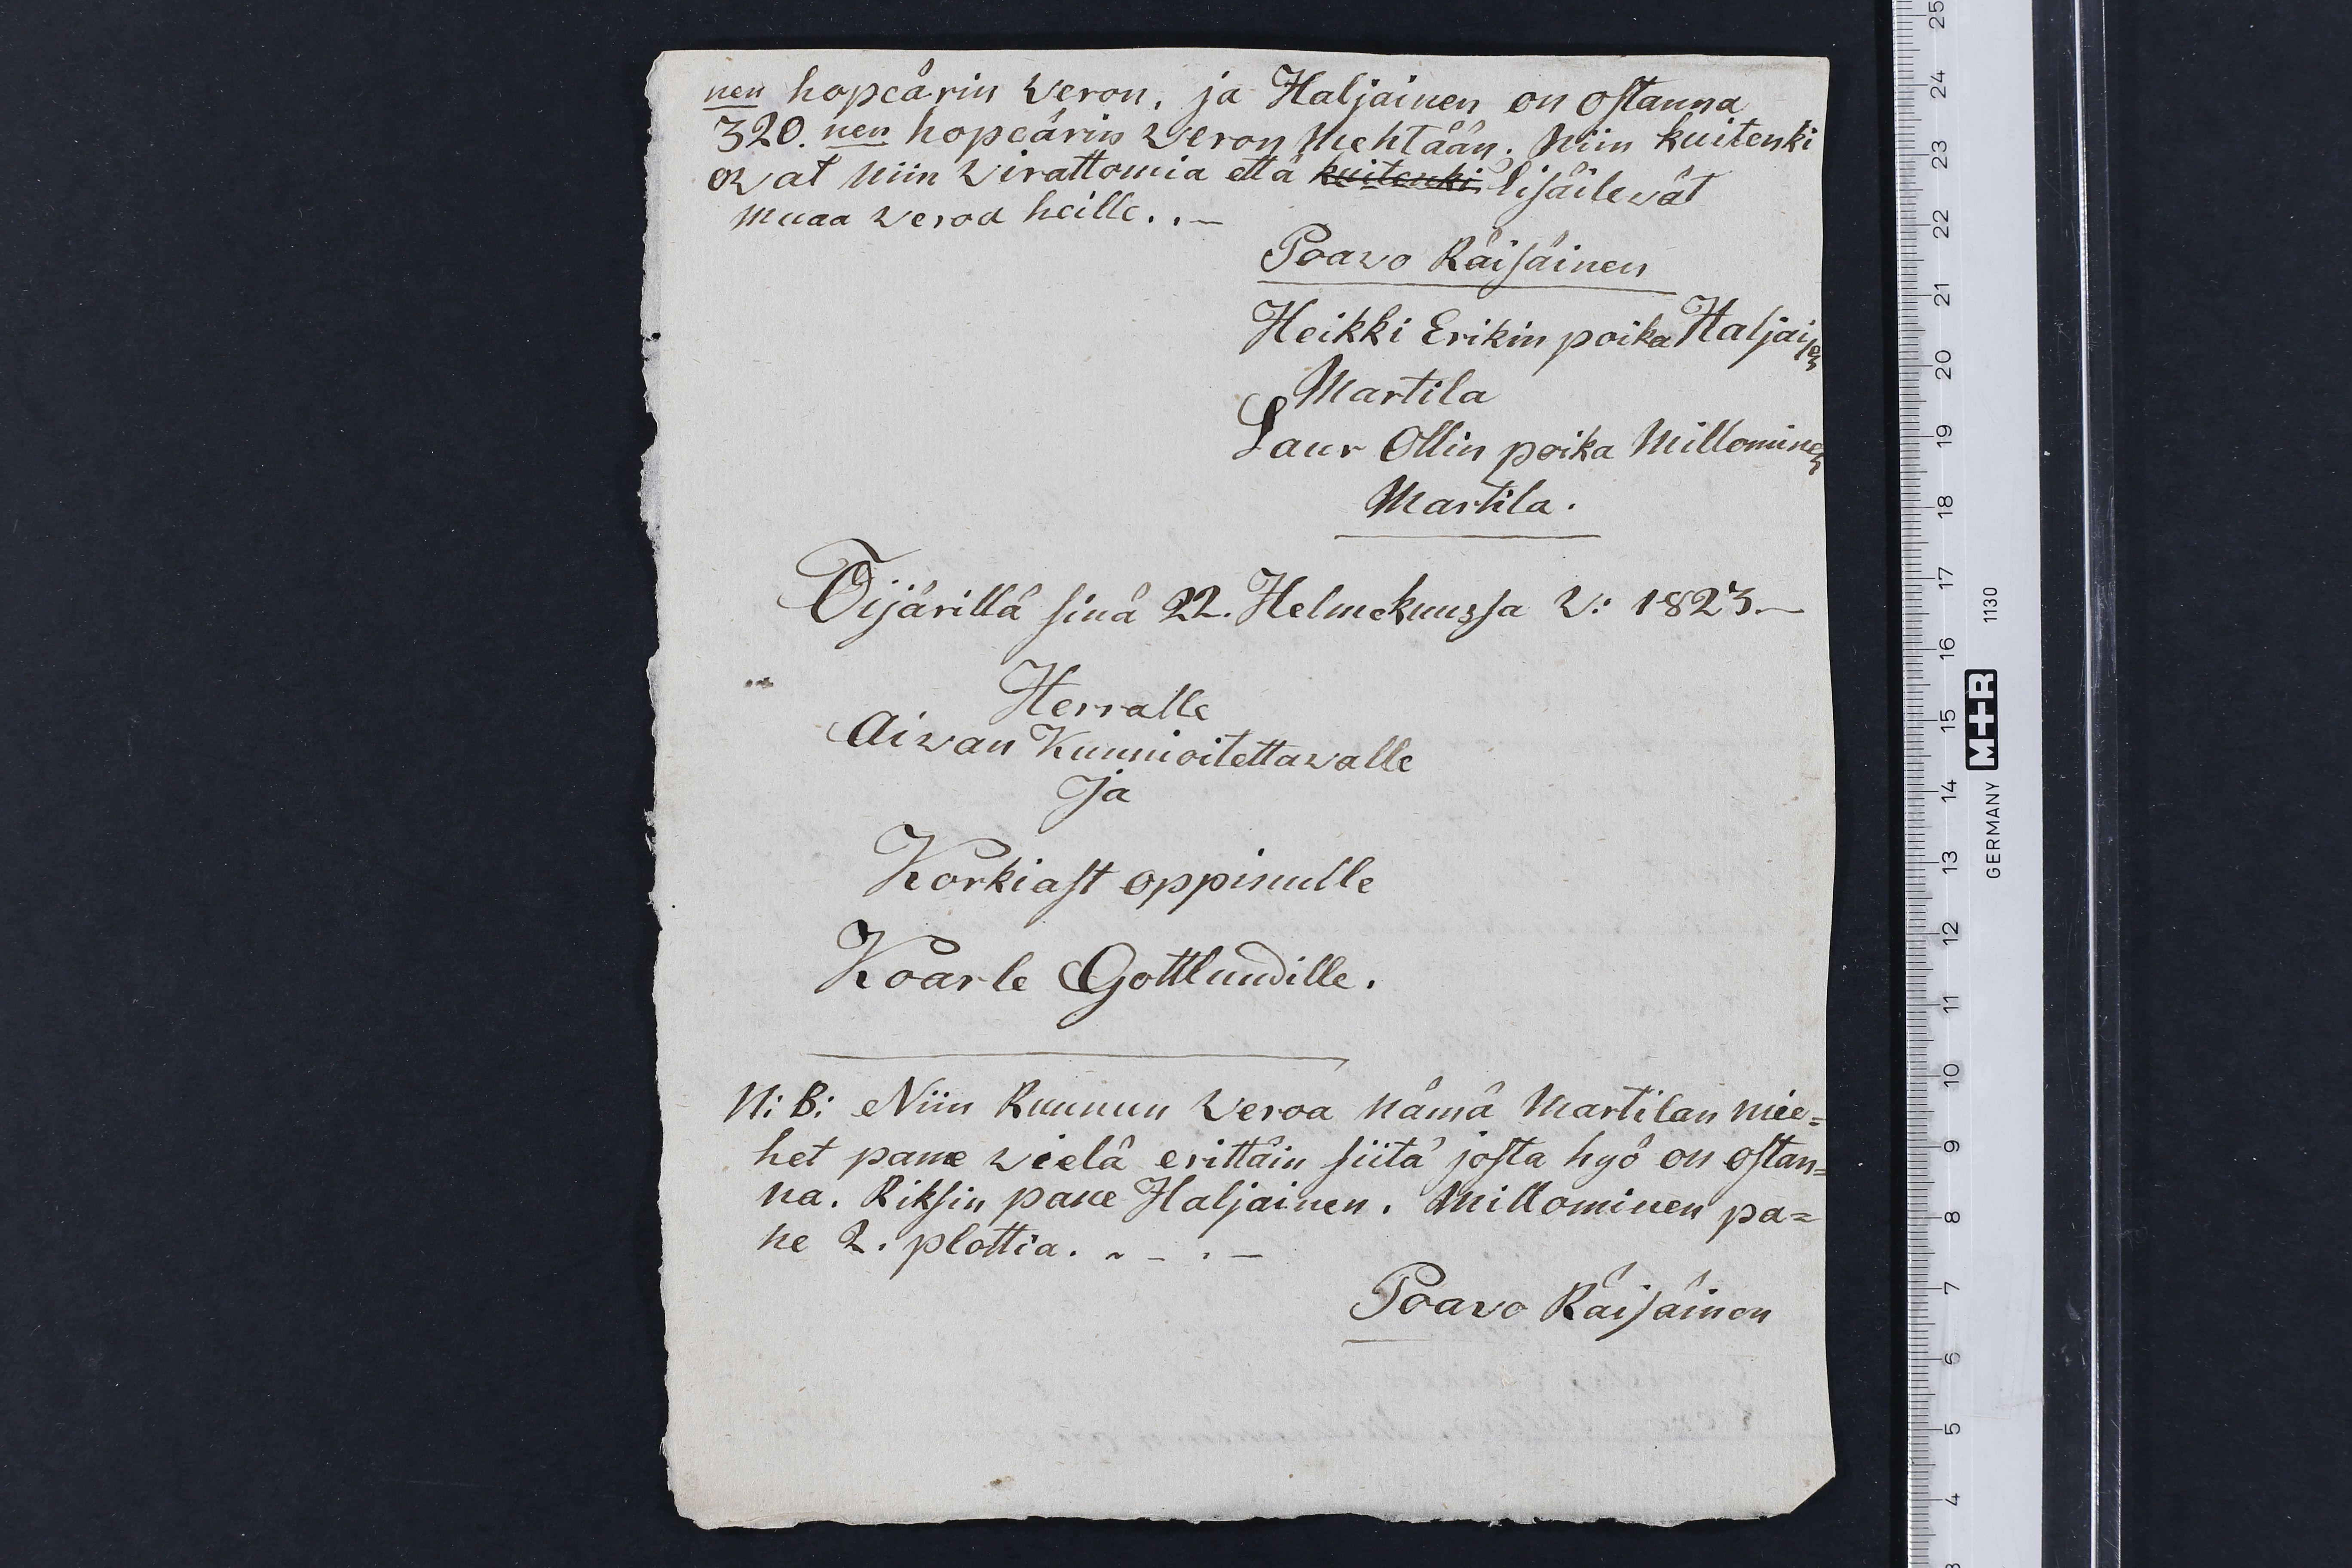 nen hopeärin Veron, ja Haljainen on ostanna
320. nen hopeärin Veron Mehtään. Niin kuitenki
ovat niin Virattomia että kuitenki lisäilevät
muaa Veroa heille..—
Poavo Räisäinen
Heikki Erikin poika Haljainen
Martila
Laur Ollin poika Millominen
Martila.
Öijärillä sinä 22. Helmekuussa V: 1823.—
Herralle
Aivan Kunnioitettavalle
Ja
Korkiast oppinulle
Koarle Gottlundille.
N: B: Niin Ruunun Veroa nämä Martilan mie=
het pane vielä erittäin siitä josta hyö on ostan=
na. Riksin pane Haljainen. Millominen pa=
ne 2. plottia. . – . –
Poavo Räisäinen
25
24
23
22
21
20
19
18
17
16
15
14
13
12
11
10
9
8
7
6
5
4
GERMANY M+R 1130